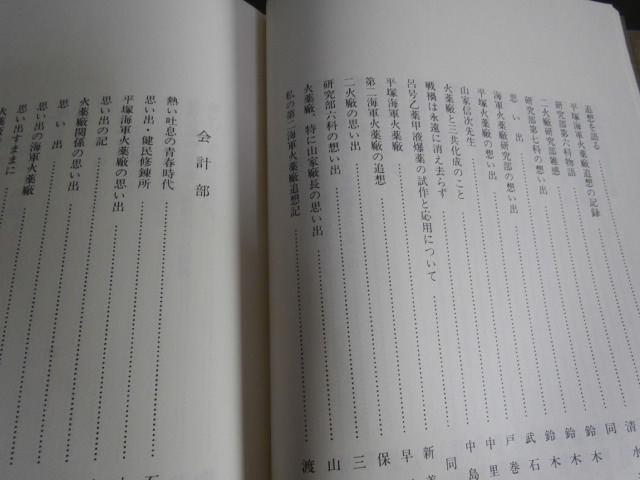 追想を辿る……清水
平塚海軍火薬廠追想の記録……同
研究部第六科物語……鈴木
二火廠研究部雑感……鈴木
研究部第七科の想い出……鈴木
思い出……武石
海軍火薬廠研究部の想い出……戸巻
平塚火薬廠の想い出……中里
山家信次先生……中島
火薬廠と三共化成のこと……同
戦禍は永遠に消え去らず
呂号乙薬甲液爆薬の試作と応用について……新
平塚海軍火薬廠……早
第二海軍火薬廠の追想……保
二火廠の思い出……三
研究部六科の想い出……山
火薬廠、特に山家廠長の思い出……渡
私の第二海軍火薬廠追想記
会計部
熱い吐息の青春時代……石
思い出・健民修錬所
平塚海軍火薬廠の思い出
思い出の記
火薬廠関係の思い出
思い出
思い出の海軍火薬廠
思い出すままに
火薬廠